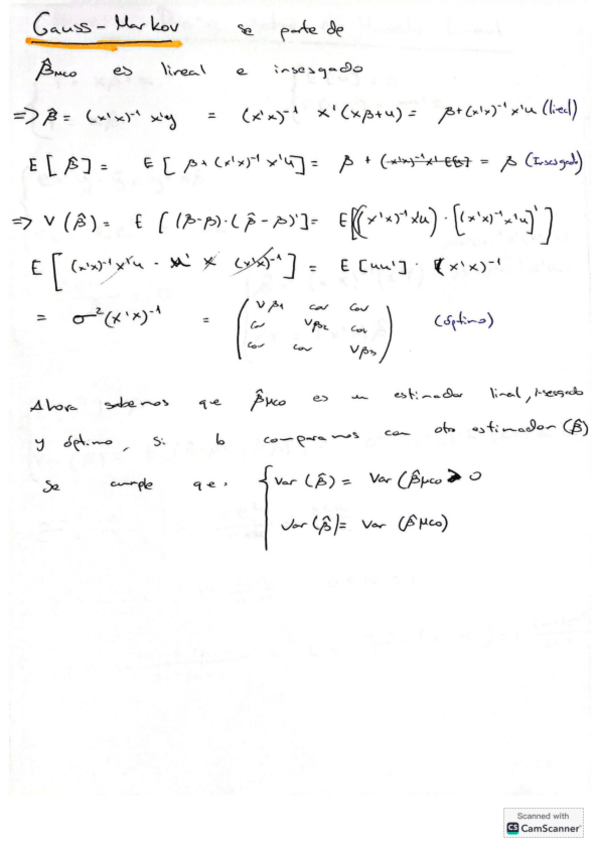 Gauss-Markov se parte de
β̂MCO es lineal e insesgado
=> β̂ = (x'x)⁻¹ x'y = (x'x)⁻¹ x'(xβ+u) = β+(x'x)⁻¹ x'u (lineal)
E[β̂] = E[β+(x'x)⁻¹ x'u] = β + (x'x)⁻¹x' E[u] = β (Insesgado)
=> V(β̂) = E[(β̂-β)·(β̂-β)'] = E[((x'x)⁻¹x'u)·[(x'x)⁻¹x'u]']
E[(x'x)⁻¹x'u · u' x (x'x)⁻¹] = E[uu']·(x'x)⁻¹
= σ²(x'x)⁻¹ = (Vβ1 cov cov
cov Vβ2 cov (óptimo)
cov cov Vβ3)
Ahora sabemos que β̂MCO es un estimador lineal, insesgado
y óptimo, si lo comparamos con otro estimador (β̂)
Se cumple que: { Var(β̂) = Var(β̂MCO > 0
Var(β̂) = Var(β̂MCO)
Scanned with
CS CamScanner